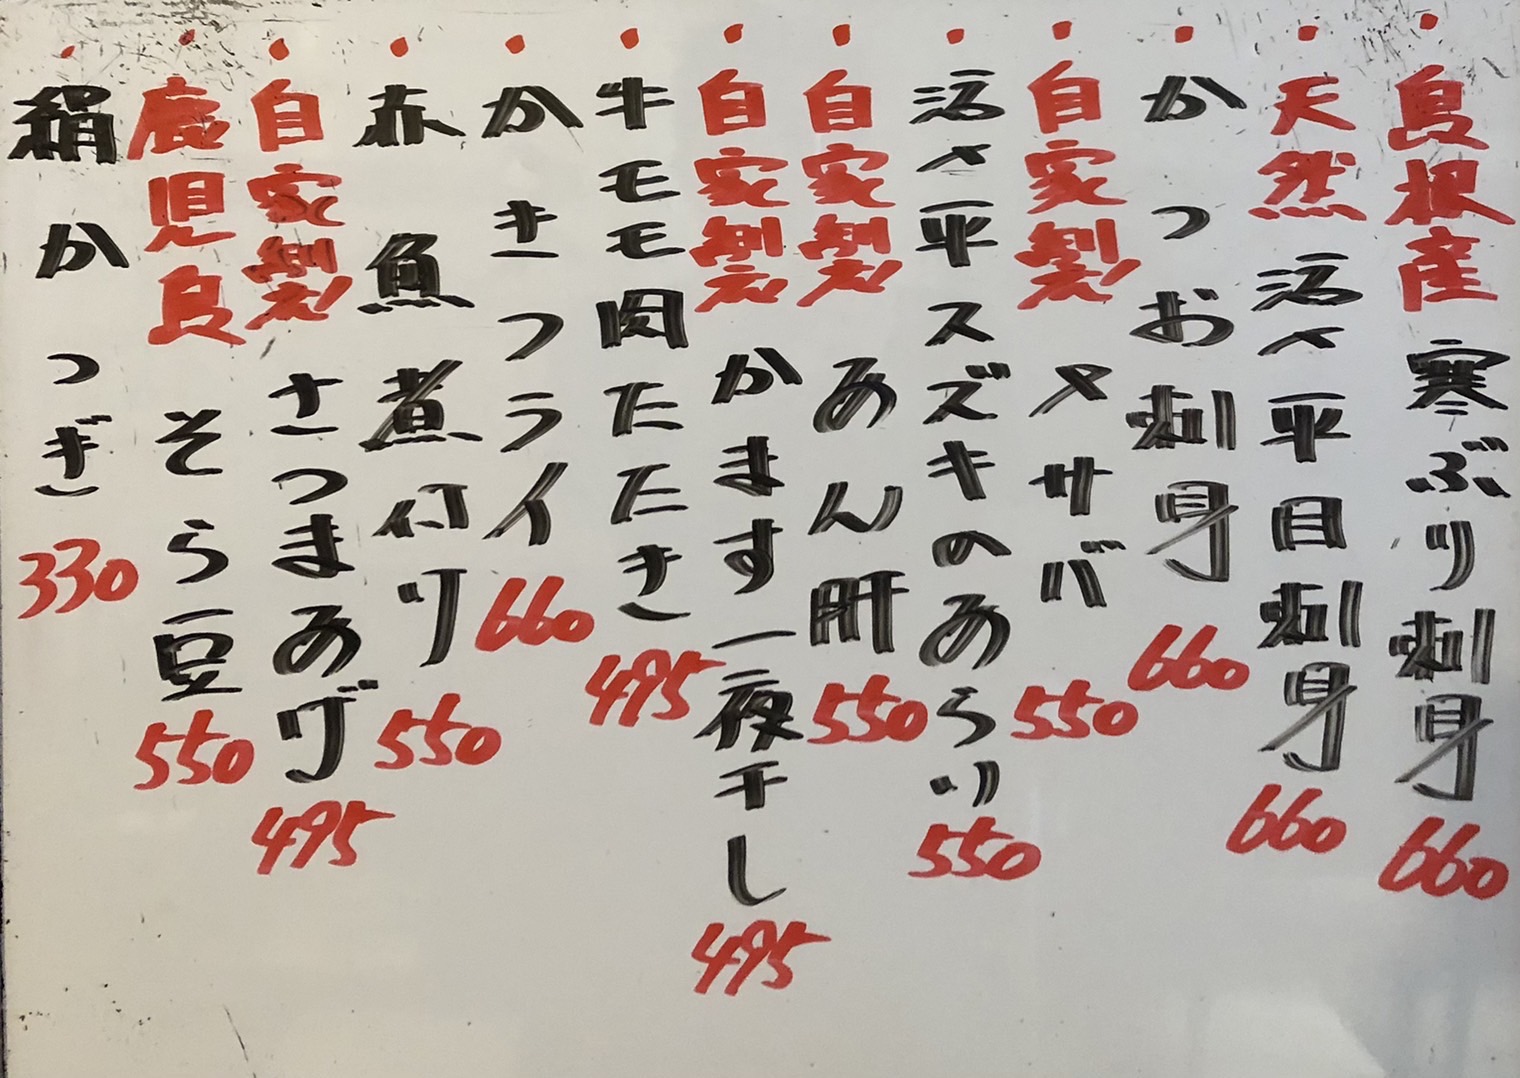 ・島根産寒ぶり刺身660
・天然活〆平目刺身660
・かつお刺身660
・自家製〆サバ550
・活〆平スズキのあらソ550
・自家製あん肝550
・自家製かます一夜干し495
・牛モモ肉たたき495
・かきフライ660
・赤魚煮付け550
・自家製さつまあげ495
・鹿児島そら豆550
・絹かつぎ330